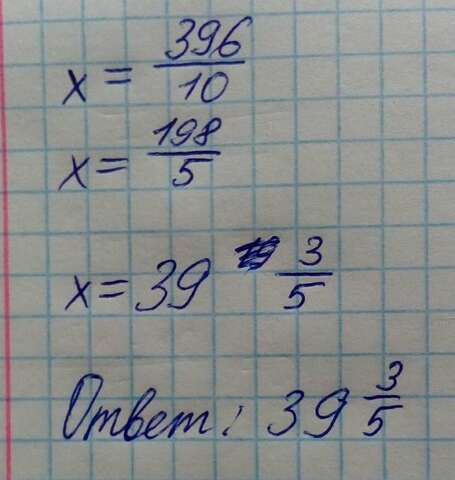 x = 396/10
x = 198/5
x = 39 3/5
Ответ: 39 3/5